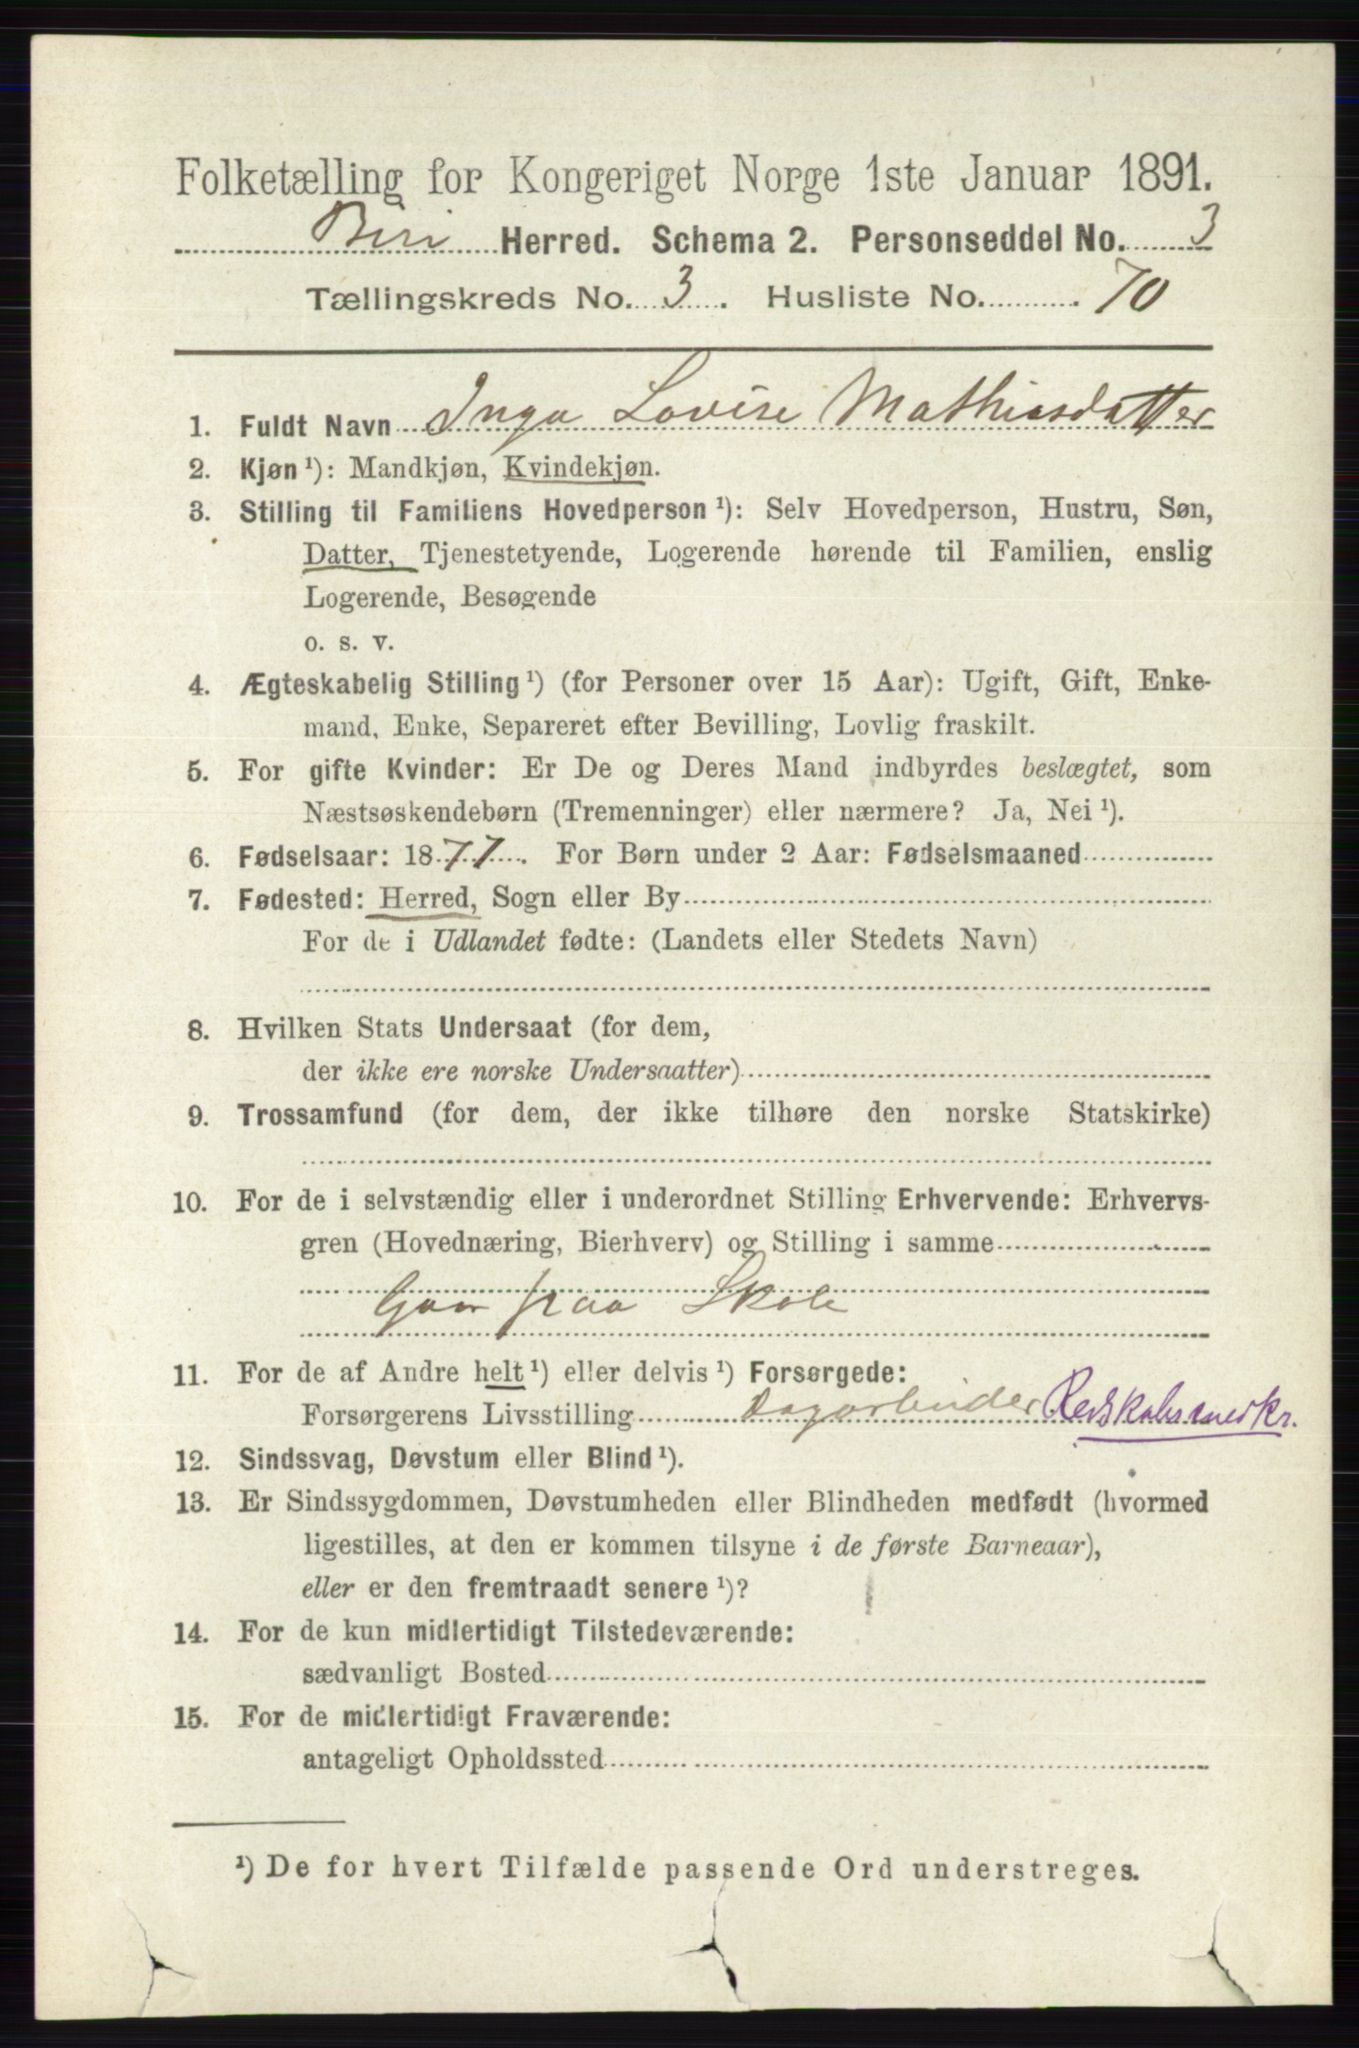 Folketælling for Kongeriget Norge 1ste Januar 1891.
Biri Herred. Schema 2. Personseddel No. 3
Tællingskreds No. 3. Husliste No. 70
1. Fuldt Navn Inga Lovise Mathiasdatter
2. Kjøn ¹): Mandkjøn, Kvindekjøn.
3. Stilling til Familiens Hovedperson ¹): Selv Hovedperson, Hustru, Søn,
Datter, Tjenestetyende, Logerende hørende til Familien, enslig
Logerende, Besøgende
o. s. v.
4. Ægteskabelig Stilling ¹) (for Personer over 15 Aar): Ugift, Gift, Enke-
mand, Enke, Separeret efter Bevilling, Lovlig fraskilt.
5. For gifte Kvinder: Er De og Deres Mand indbyrdes beslægtet, som
Næstsøskendebørn (Tremenninger) eller nærmere? Ja, Nei ¹).
6. Fødselsaar: 1877. For Børn under 2 Aar: Fødselsmaaned
7. Fødested: Herred, Sogn eller By
For de i Udlandet fødte: (Landets eller Stedets Navn)
8. Hvilken Stats Undersaat (for dem,
der ikke ere norske Undersaatter)
9. Trossamfund (for dem, der ikke tilhøre den norske Statskirke)
10. For de i selvstændig eller i underordnet Stilling Erhvervende: Erhvervs-
gren (Hovednæring, Bierhverv) og Stilling i samme
Gaar paa Skole
11. For de af Andre helt ¹) eller delvis ¹) Forsørgede:
Forsørgerens Livsstilling Dagarbeider Redskabssnedkr.
12. Sindssvag, Døvstum eller Blind ¹).
13. Er Sindssygdommen, Døvstumheden eller Blindheden medfødt (hvormed
ligestilles, at den er kommen tilsyne i de første Barneaar),
eller er den fremtraadt senere ¹)?
14. For de kun midlertidigt Tilstedeværende:
sædvanligt Bosted
15. For de midlertidigt Fraværende:
antageligt Opholdssted
¹) De for hvert Tilfælde passende Ord understreges.